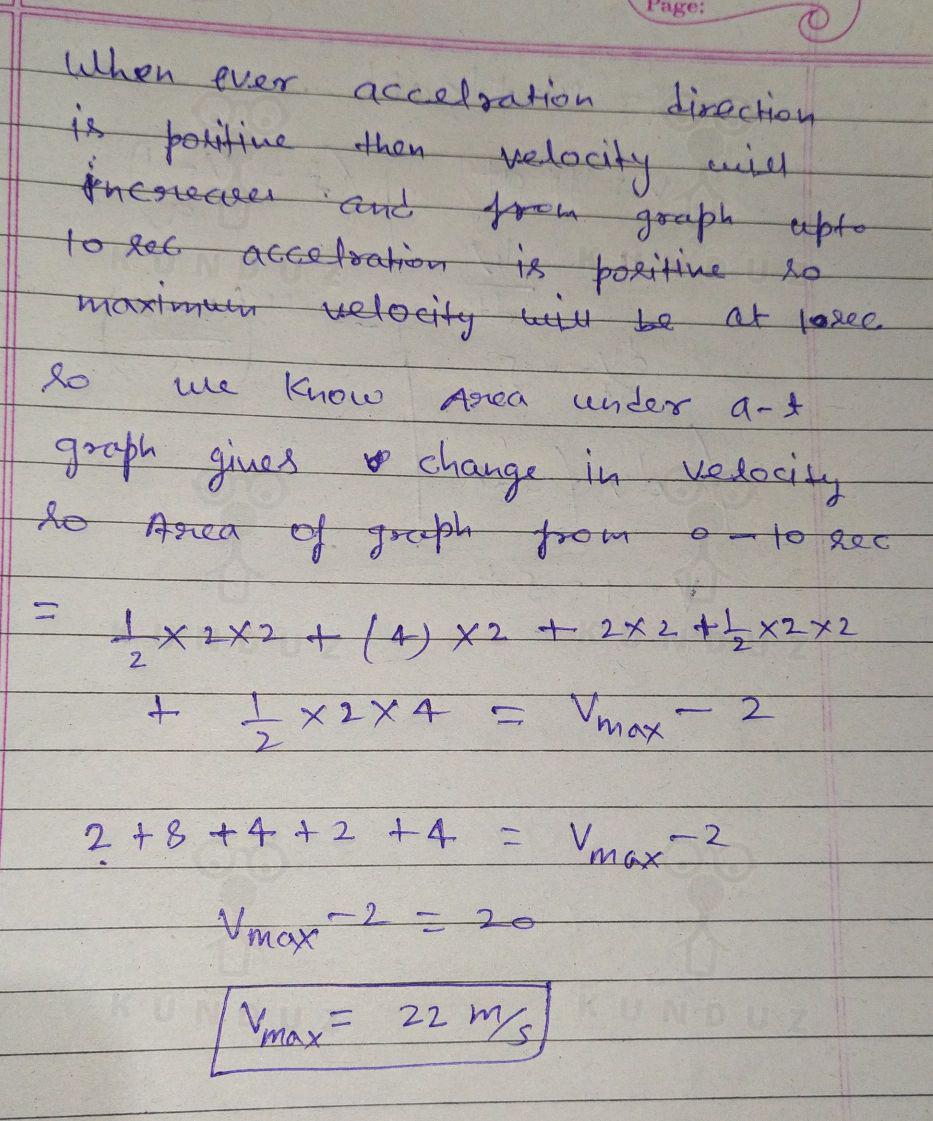 Page:
When ever accelration direction
is positive then velocity will
increases and from graph upto
10 sec accelration is positive so
maximum velocity will be at 10sec
so we know Area under a-t
graph gives change in velocity
so Area of graph from 0-10 sec
= 1/2 × 2×2 + (4) ×2 + 2×2 + 1/2 ×2×2
+ 1/2 ×2×4 = Vmax - 2
2 +8 +4 +2 +4 = Vmax -2
Vmax -2 = 20
Vmax = 22 m/s
KUNDUZ
KUNDUZ